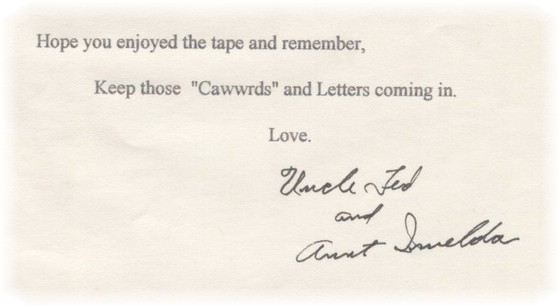 Hope you enjoyed the tape and remember,
Keep those "Cawwrds" and Letters coming in.
Love.
Uncle Ted
and
Aunt Imelda